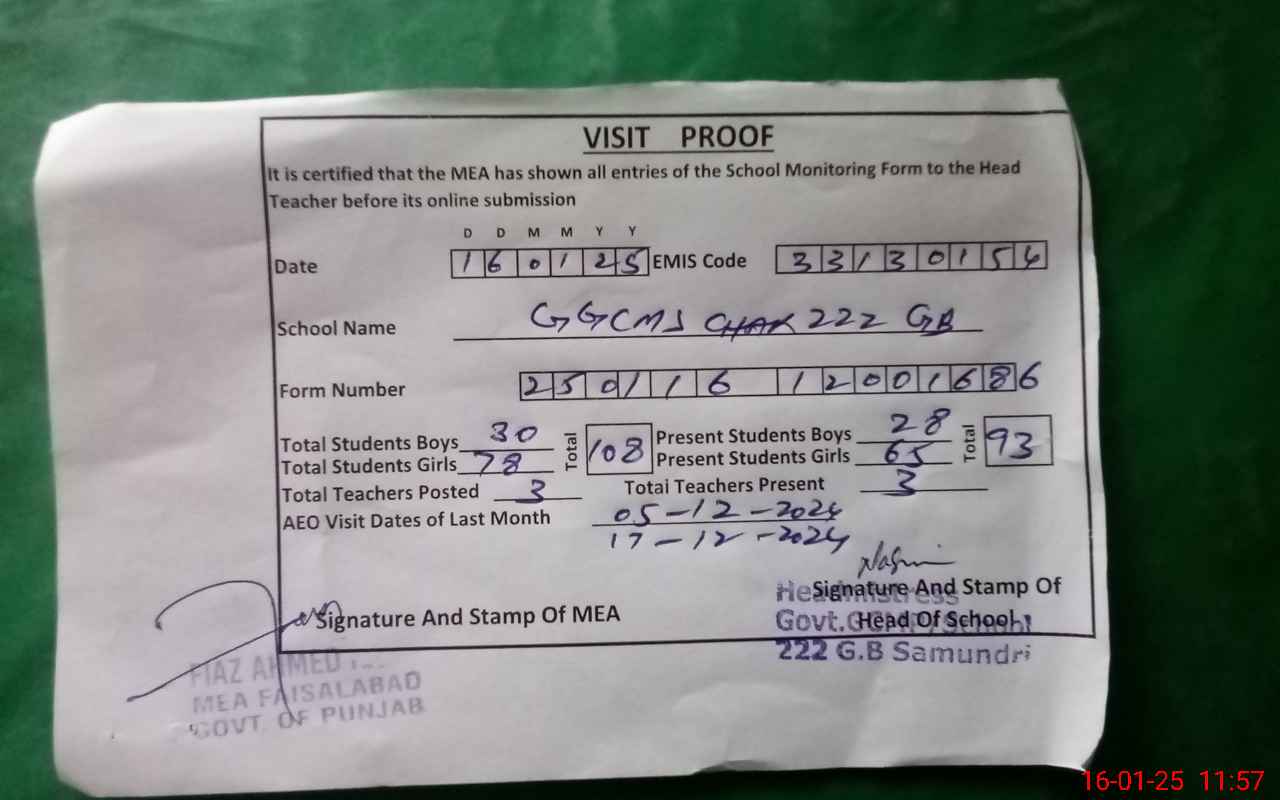 VISIT PROOF
It is certified that the MEA has shown all entries of the School Monitoring Form to the Head
Teacher before its online submission
D D M M Y Y
Date 160125 EMIS Code 33130154
School Name GGCMS CHAK 222 GB
Form Number 250116 12001686
Total Students Boys 30 Total 108 Present Students Boys 28 Total 93
Total Students Girls 78 Present Students Girls 65
Total Teachers Posted 3 Total Teachers Present 3
AEO Visit Dates of Last Month 05-12-2024
17-12-2024
Signature And Stamp Of MEA
Signature And Stamp Of
Head Of School
Headmistress
Govt.
222 G.B Samundri
FIAZ AHMED
MEA FAISALABAD
GOVT. OF PUNJAB
16-01-25 11:57